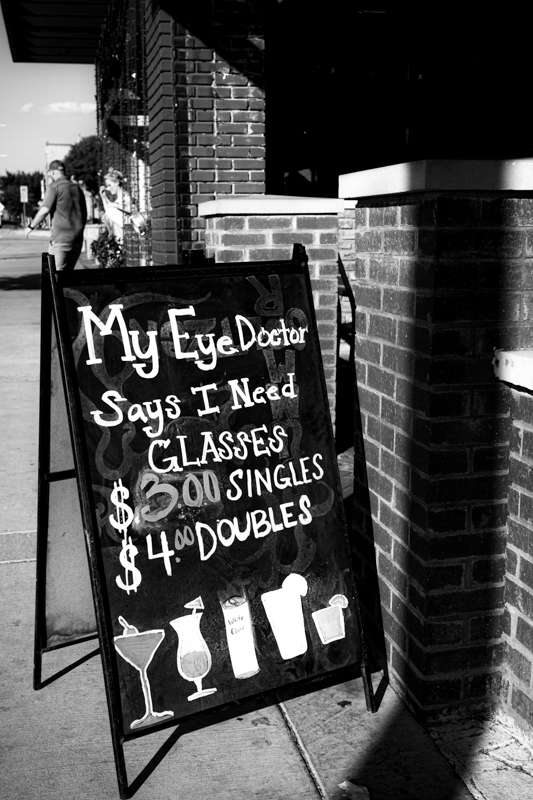 My Eye Doctor
Says I Need
GLASSES
$3.00 SINGLES
$4.00 DOUBLES
White
Claw